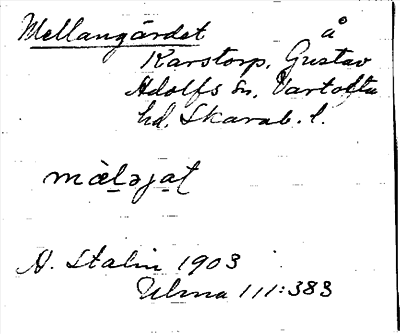 Mellangärdet å
Karstorp, Gustav
Adolfs sn, Vartofta
hd, Skarab. l.
màl̠əja̠t
A. Stalin 1903
Ulma 111:383